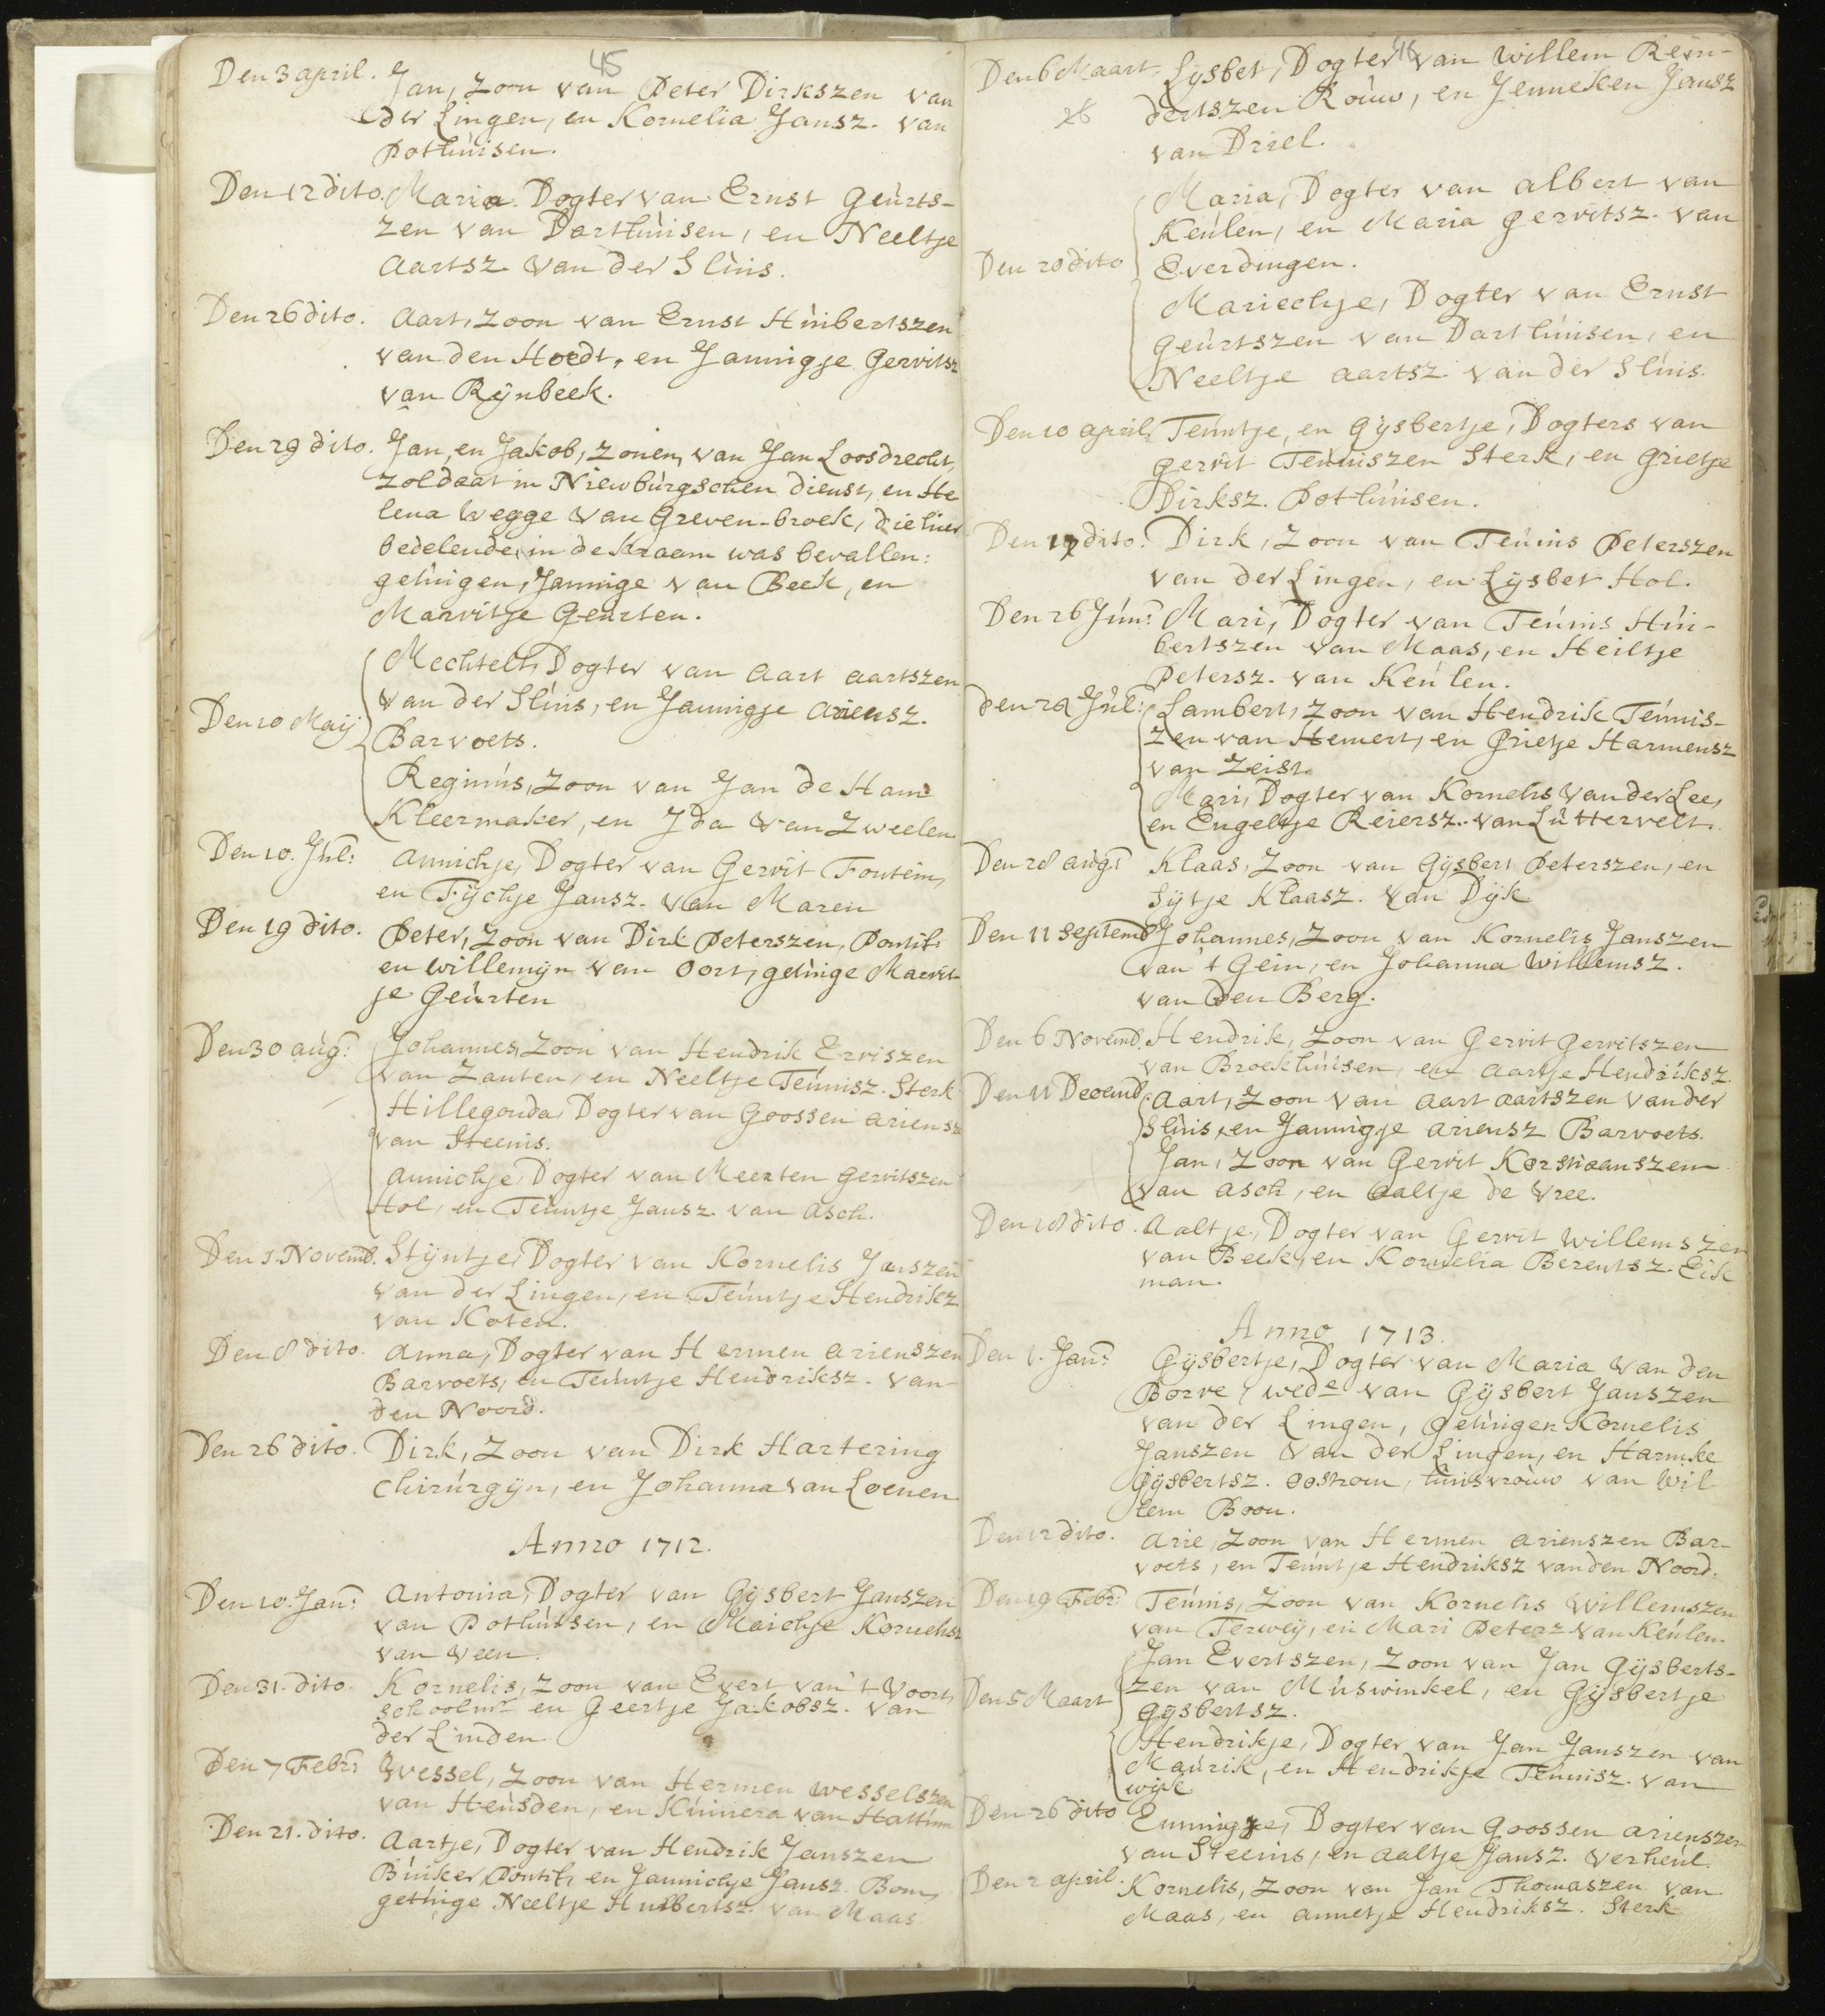 45
Den 3 april. Jan, Zoon van Peter Dirkszen van
der Lingen, en Kornelia Jansz. van
Pothuisen.
Den 12 dito. Maria Dogter van Ernst Geurts-
zen van Darthuisen, en Neeltje
Aartsz van der Sluis.
Den 26 dito. Aart, Zoon van Ernst Huibertszen
van den Hoedt, en Jannigje Gerritsz
van Rÿnbeek.
Den 29 dito. Jan, en Jakob, Zonen, van Jan Loosdrecht,
Zoldaat in Niewburgschen dienst, en He
lena Wegge van Greven-broek, die hier
bedelende, in de Kraam was bevallen:
getuigen, Jannige van Beek, en
Marritje Geurten.
Mechtelt, Dogter van Aart Aartszen
van der Sluis, en Jannigje Ariensz.
Den 10 Maij
Barvoets.
Reginus, Zoon van Jan de Ham
Kleermaker, en Ida van Zweelen
Den 10. Jul: Annichje, Dogter van Gerrit Fontein,
en Fÿchje Jansz. van Maren
Den 19 dito. Peter, Zoon van Dirk Peterszen, Pontif:
en Willemÿn van Oort, getuige Marrit
je Geurten
Den 30 aug: Johannes, Zoon van Hendrik Erriszen
van Zanten, en Neeltje Teunisz. Sterk
Hillegonda, Dogter van Goossen Ariensz
van Steenis.
Annichje, Dogter van Meerten Gerritszen
Hol, en Teuntje Jansz. van Asch.
Den 1. Novemb. Stÿntje, Dogter van Kornelis Janszen
van der Lingen, en Teuntje Hendrikz
van Koten.
Den 8 dito. Anna, Dogter van Hermen Arienszen
Barvoets, en Teuntje Hendriksz. van-
den Noord.
Den 26 dito. Dirk, Zoon van Dirk Hartering
Chirurgÿn, en Johanna van Loenen
Anno 1712.
Den 10. Jan: Antonia, Dogter van Gÿsbert Janszen
van Pothuisen, en Maichje Kornelisz
van Veen.
Den 31. dito. Kornelis, Zoon van Evert van 't Voort,
schoolmr en Geertje Jakobsz. van
der Linden
Den 7 Febr: Wessel, Zoon van Hermen Wesselszen
van Heusden, en Kunnera van Hattum
Den 21. dito. Aartje, Dogter van Hendrik Janszen
Buiker, Pontif, en Jannichje Jansz. Bom,
getuige Neeltje Huibertsz. van Maas
Den 6 Maart. Lÿsbet, Dogter van Willem Rein-
dertszen Rouw, en Jenneken Jansz
26
van Driel.
Maria, Dogter van Albert van
Keulen, en Maria Gerritsz. van
Den 20 dito Everdingen.
Mariechje, Dogter van Ernst
Geurtszen van Darthuisen, en
Neeltje Aartsz van der Sluis.
Den 10 april, Teuntje, en Gÿsbertje, Dogters van
Gerrit Teuniszen Sterk, en Grietje
Dirksz. Pothuisen.
Den 17 dito. Dirk, Zoon van Teunis Peterszen
van der Lingen, en Lÿsbet Hol.
Den 26 Jun: Mari, Dogter van Teunis Hui-
bertszen van Maas, en Heiltje
Petersz. van Keulen.
Den Jul: Lambert, Zoon van Hendrik Teunis-
zen van Hemert, en Grietje Harmensz
van Zeist.
Mari, Dogter van Kornelis van der Lee,
en Engeltje Reiersz. van Luttervelt.
Den 28 aug: Klaas, Zoon van Gÿsbert Peterszen, en
Sÿtje Klaasz. van Dÿk
Den 11 Septemb. Johannes, Zoon van Kornelis Janszen
van 't Gein, en Johanna Willemsz.
van den Berg.
Den 6 Novemb. Hendrik, Zoon van Gerrit Gerritszen
van Broekhuisen, en Aartje Hendriksz.
Den 11 Decemb. Aart, Zoon van Aart Aartszen van der
Sluis, en Jannigje Ariensz Barvoets.
Jan, Zoon van Gerrit Korstiaanszen
van Asch, en Aaltje de Vree.
Den 18 dito. Aaltje, Dogter van Gerrit Willemszen
van Beek, en Kornelia Berentsz. Eik
man.
Anno 1713.
Den 1. Jan: Gÿsbertje, Dogter van Maria van den
Borre, wede van Gÿsbert Janszen
van der Lingen, getuigen Kornelis
Janszen van der Lingen, en Harmke
Gÿsbertsz. Oostrom, huisvrouw van Wil
lem Boon.
Den 12 dito. Arie, Zoon van Hermen Arienszen Bar-
voets, en Teuntje Hendriksz van den Noord.
Den 19 Febr: Teunis, Zoon van Kornelis Willemszen
van Terweÿ, en Mari Petersz van Keulen.
Jan Evertszen, Zoon van Jan Gÿsberts-
zen van Muswinkel, en Gÿsbertje
Den 5 Maart Gÿsbertsz.
Hendrikje, Dogter van Jan Janszen van
Maurik, en Hendrikje Teunisz. van
Wijk.
Den 26 dito Emmigje, Dogter van Goossen Arienszen
van Steenis, en Aaltje Jansz. Verheul.
Den 2 april. Kornelis, Zoon van Jan Thomaszen van
Maas, en Annetje Hendriksz. Sterk